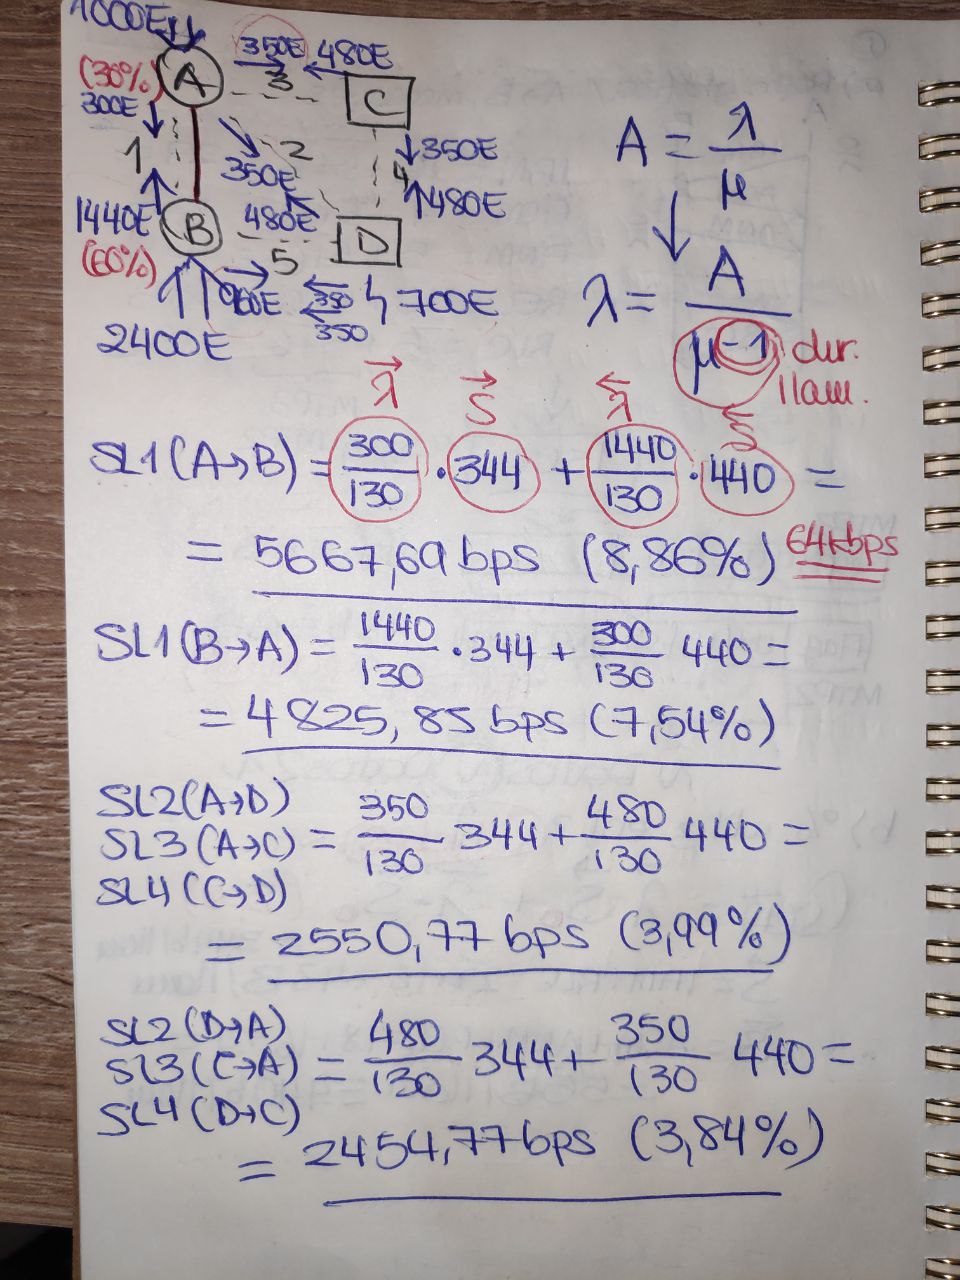 1000E
350E 480E
(30%) A 3 C
300E
1 2 350E
350E 4 480E
1440E B 480E D
(60%) 5
960E 350 700E
350
2400E
A = λ/μ
λ = A/μ-1 dur. llam.
λ S λ S
SL1(A→B) = 300/130 · 344 + 1440/130 · 440 =
= 5667,69 bps (8,86%) 64kbps
SL1(B→A) = 1440/130 · 344 + 300/130 440 =
= 4825,85 bps (7,54%)
SL2(A→D)
SL3(A→C) = 350/130 344 + 480/130 440 =
SL4(C→D)
= 2550,77 bps (3,99%)
SL2(D→A)
SL3(C→A) = 480/130 344 + 350/130 440 =
SL4(D→C)
= 2454,77 bps (3,84%)